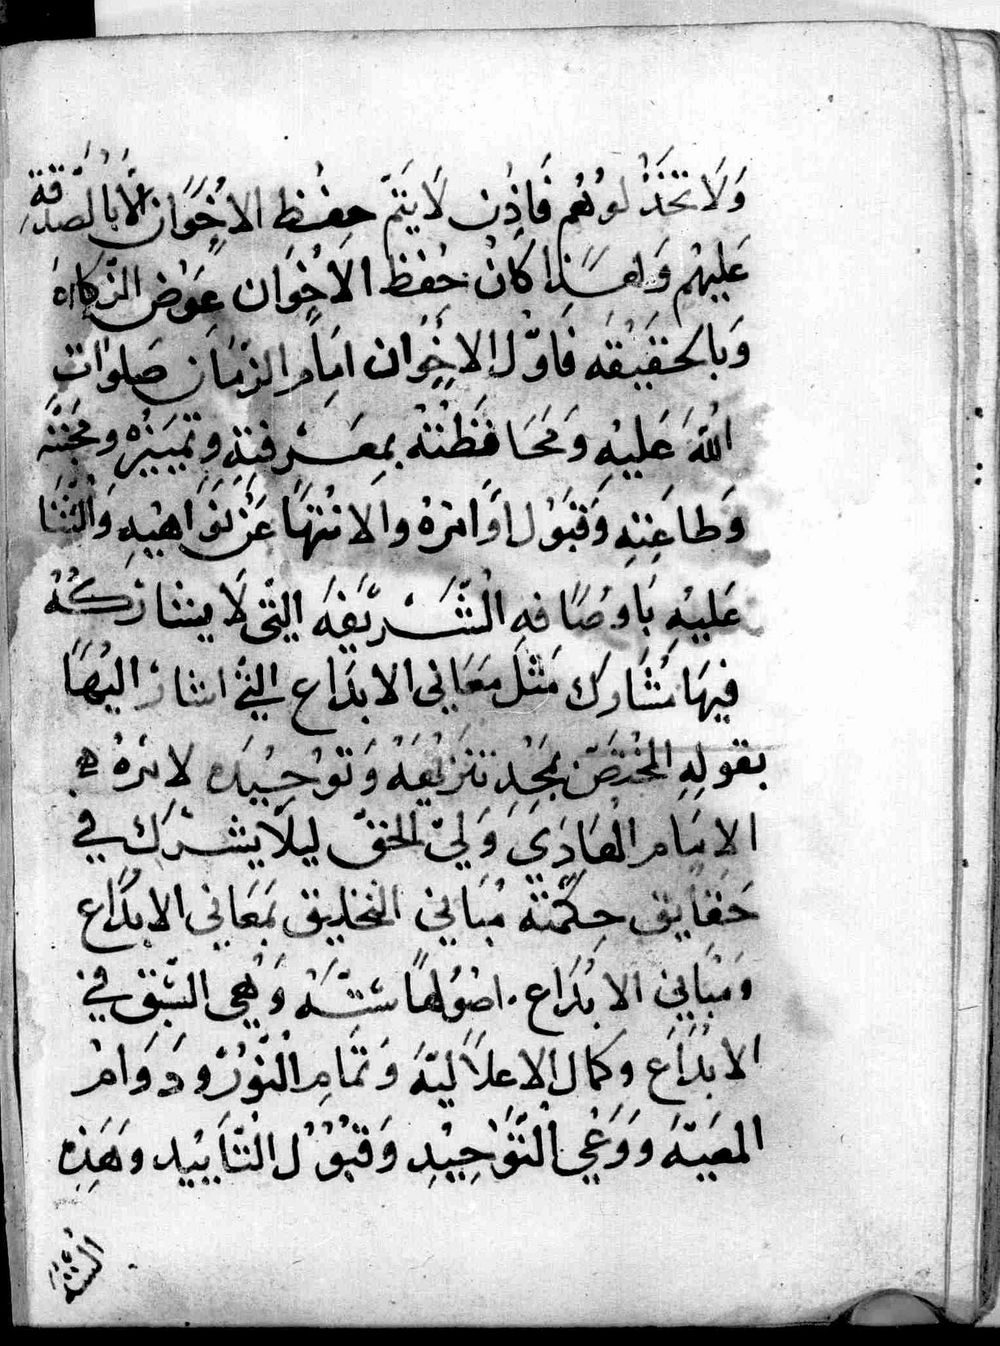 وَلَا تَخْذُلُوهُم فَاِذَن لَا يَتِمّ حِفْظ الاخْوَان الَّا بِالصَّدَقَةِ
عَلَيْهِم وَلِهَذا كَانَ حِفْظ الاخْوَان عِوَض الزَّكاة
وَبِالحَقِيْقَه فَاَوّل الاخْوَان امَام الزَمَان صَلَوات
اللَّه عَلَيْهِ وَمُحَافَظَتهُ بِمَعْرِفَتِهِ وَتَمْيِيْزه وَمحَبّته
وَطاعَتِهِ وَقَبُوْل اوَامره والانْتهَا عَنْ نَوَاهيْهِ وَالثَّنَا
عَلَيْهِ بَاوصَافه الْشَّرِيْفَه التّى لَا يشَارِكُهُ
فِيهَا مُشَارك مَثْل مَعَاني الابدَاع التي اشارَ اليْهَا
بقولهِ المُخْتصّ بمَجْدِ تنزيْهَهُ وَتَوْحِيْدَه لامْرهُ
الامَام الهَادَي وَليّ الحقّ ليلَا يشْرك في
حَقايِق حِكْمَتهُ مَبَاني التخليق بمَعَاني الابدَاع
وَمَبَاني الابْدَاع. اصُوْلهَا ستّهْ وَهْي السّبْق في
الابْدَاع وكمَال الاعلَاليّة وَتَمَامِ النّوْرْ وَدَوَامْ
المعيّة وَوَعْي الْتَّوْحِيْدِ وَقبُوْل التَّايَيْيد وهَذِه
السّتّة